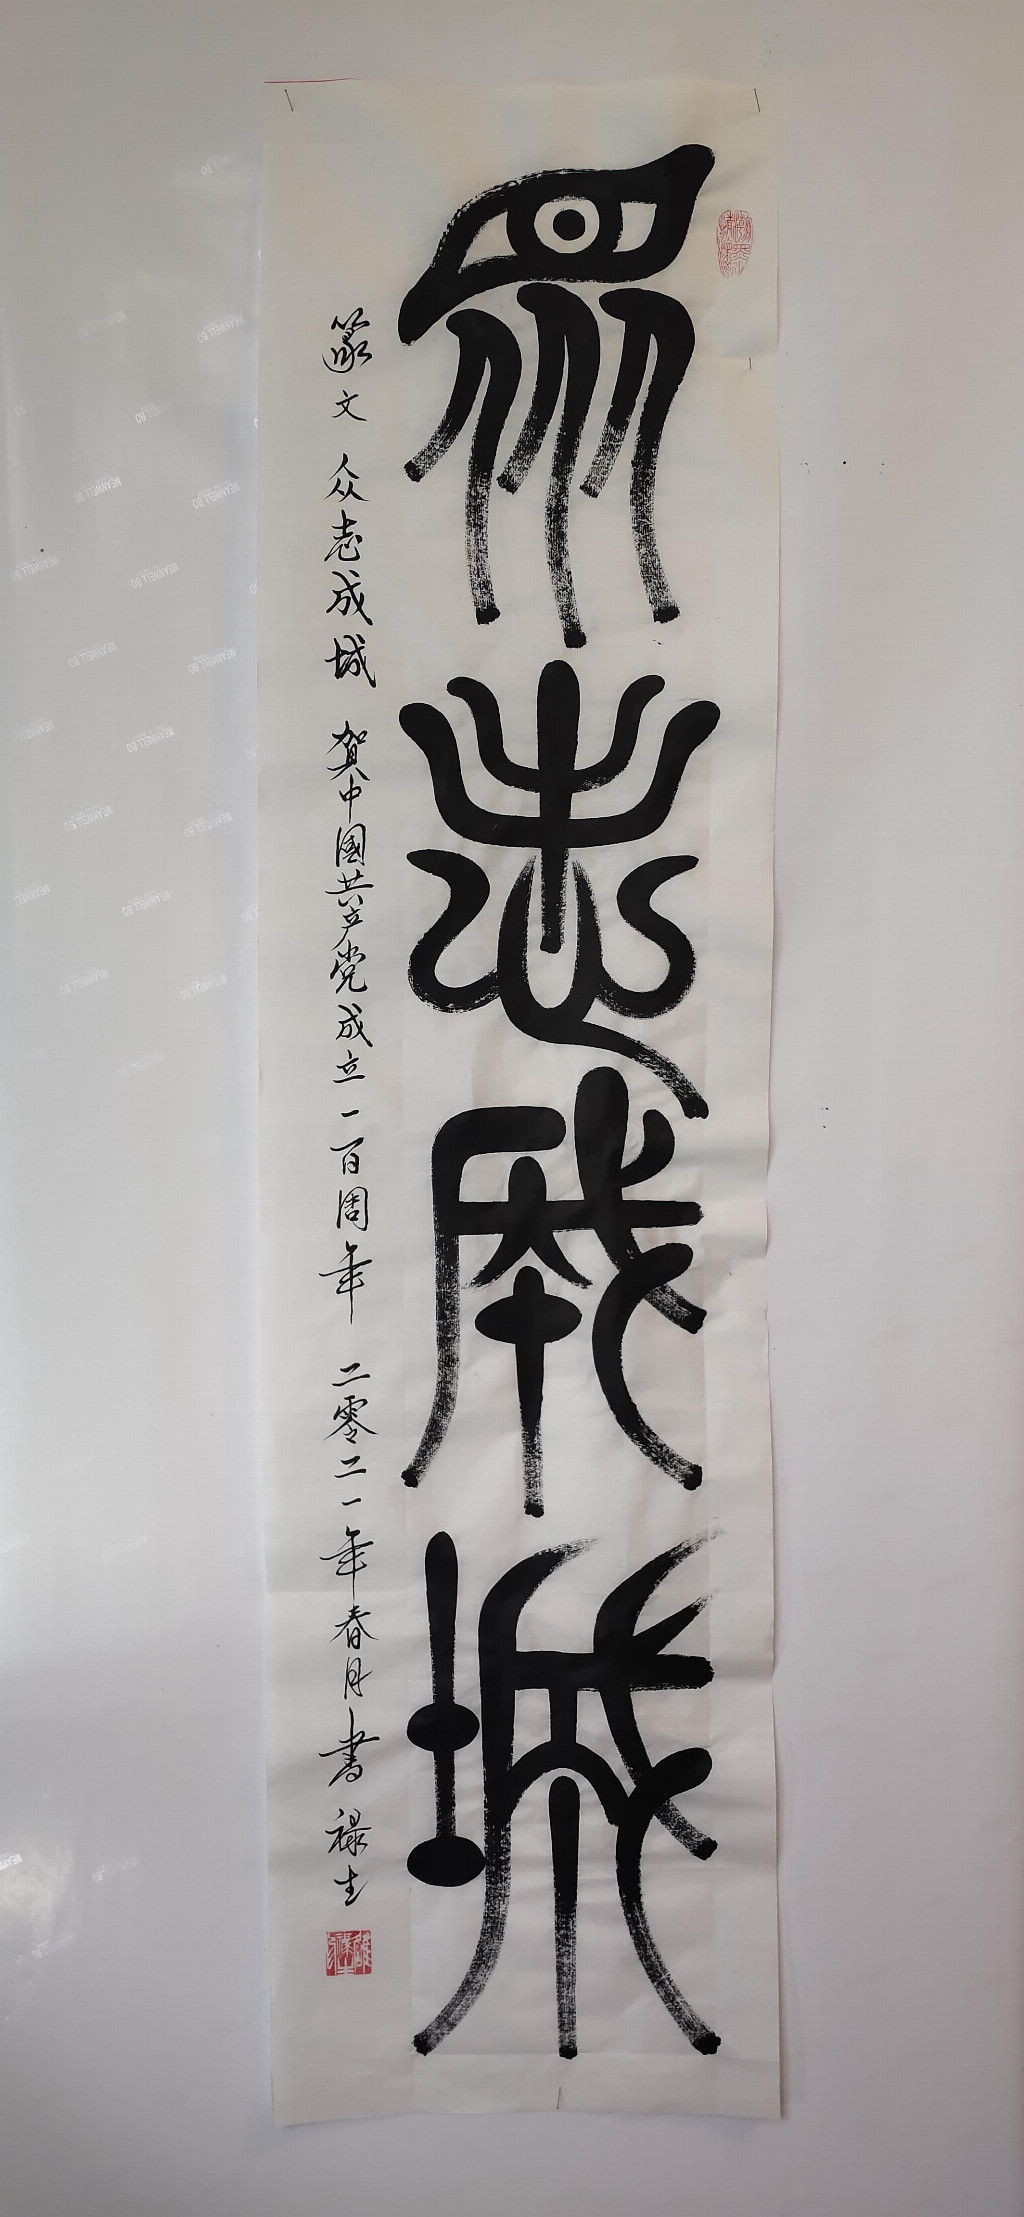 众志成城
篆文 众志成城 贺中國共产党成立一百周年 二零二一年春月書 禄生